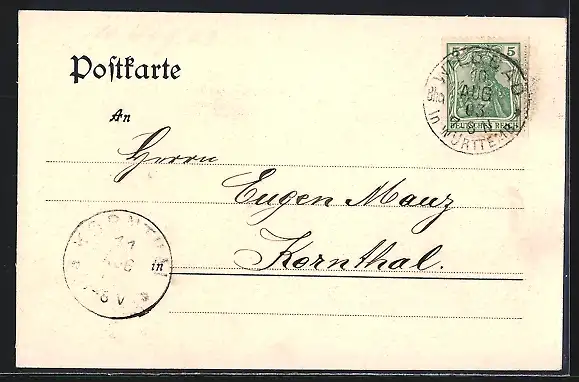 Postkarte
5 5
WILDBAD
10
AUG
03
in WÜRTTEMB
DEUTSCHES REICH
An
Herrn
Eugen Mauz
in Kornthal.
KORNTHAL
11
AUG
V.